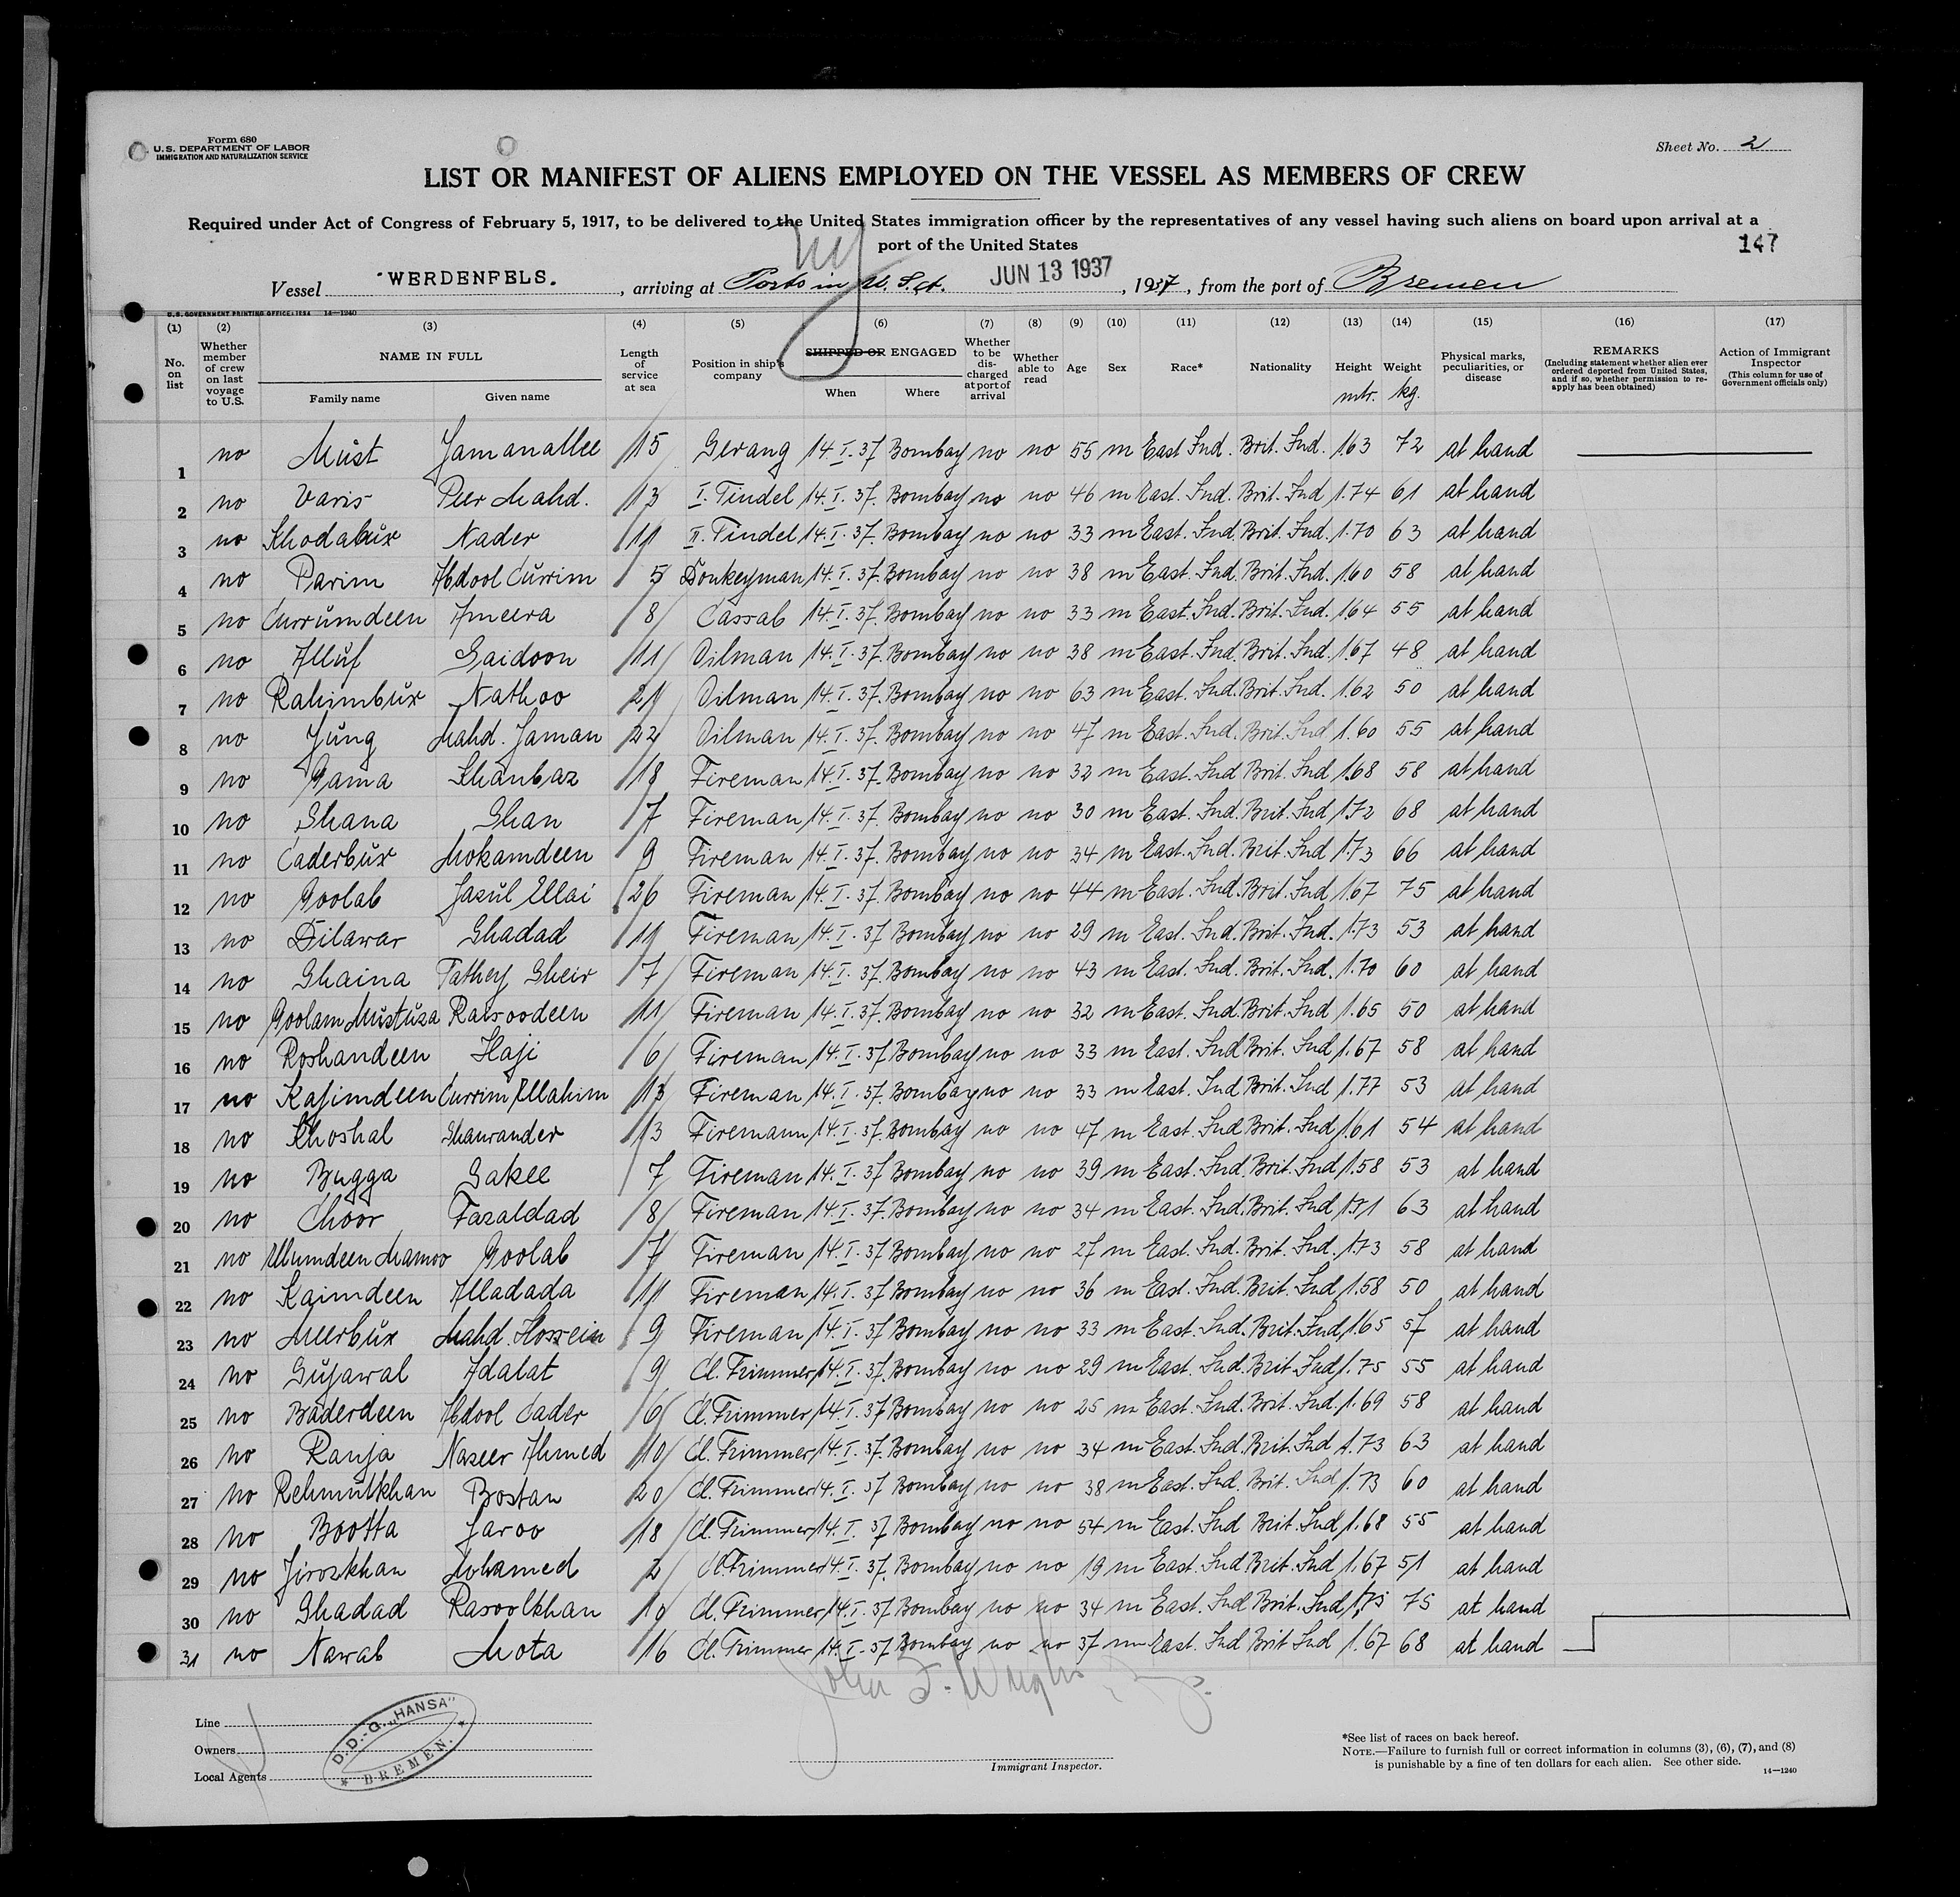 Form 680
U.S. DEPARTMENT OF LABOR
IMMIGRATION AND NATURALIZATION SERVICE
Sheet No. 2
LIST OR MANIFEST OF ALIENS EMPLOYED ON THE VESSEL AS MEMBERS OF CREW
Required under Act of Congress of February 5, 1917, to be delivered to the United States immigration officer by the representatives of any vessel having such aliens on board upon arrival at a
port of the United States
147
ny
Vessel "WERDENFELS. , arriving at Ports in U.S.A. JUN 13 1937 , 1937 , from the port of Bremen
U.S. GOVERNMENT PRINTING OFFICE: 1934 14—1240
(1) (2) (3) (4) (5) (6) (7) (8) (9) (10) (11) (12) (13) (14) (15) (16) (17)
No. on list Whether member of crew on last voyage to U.S. NAME IN FULL Family name Given name Length of service at sea Position in ship's company SHIPPED OR ENGAGED When Where Whether to be discharged at port of arrival Whether able to read Age Sex Race* Nationality Height mtr. Weight kg. Physical marks, peculiarities, or disease REMARKS (Including statement whether alien ever ordered deported from United States, and if so, whether permission to reapply has been obtained) Action of Immigrant Inspector (This column for use of Government officials only)
1 no Must Jamanallee 15 Serang 14.I.37 Bombay no no 55 m East Ind. Brit. Ind. 1.63 72 at hand
2 no Varis Peer Mahd. 13 I. Tindel 14.I.37. Bombay no no 46 m East. Ind. Brit. Ind 1.74 61 at hand
3 no Khodabux Nader 11 II. Tindel 14.I.37. Bombay no no 33 m East. Ind. Brit. Ind. 1.70 63 at hand
4 no Parim Abdool Currim 5 Donkeyman 14.I.37. Bombay no no 38 m East. Ind. Brit. Ind. 1.60 58 at hand
5 no Currumdeen Ameera 8 Cassab 14.I.37. Bombay no no 33 m East. Ind. Brit. Ind. 1.64 55 at hand
6 no Alluf Saidoon 11 Oilman 14.I.37. Bombay no no 38 m East. Ind. Brit. Ind. 1.67 48 at hand
7 no Rahimbux Nathoo 21 Oilman 14.I.37. Bombay no no 63 m East. Ind. Brit. Ind. 1.62 50 at hand
8 no Jung Mahd. Jaman 22 Oilman 14.I.37. Bombay no no 47 m East. Ind. Brit. Ind 1.60 55 at hand
9 no Gama Khanbaz 18 Fireman 14.I.37. Bombay no no 32 m East. Ind Brit. Ind 1.68 58 at hand
10 no Shana Shan 7 Fireman 14.I.37. Bombay no no 30 m East. Ind. Brit. Ind 1.72 68 at hand
11 no Caderbux Mokamdeen 9 Fireman 14.I.37. Bombay no no 34 m East. Ind. Brit. Ind 1.73 66 at hand
12 no Goolab Fazul Ellai 26 Fireman 14.I.37. Bombay no no 44 m East. Ind. Brit. Ind 1.67 75 at hand
13 no Dilawar Shadad 11 Fireman 14.I.37 Bombay no no 29 m East. Ind. Brit. Ind. 1.73 53 at hand
14 no Shaina Fathey Sheir 7 Fireman 14.I.37. Bombay no no 43 m East. Ind. Brit. Ind. 1.70 60 at hand
15 no Goolam Mustuza Rawoodeen 11 Fireman 14.I.37. Bombay no no 32 m East. Ind. Brit. Ind 1.65 50 at hand
16 no Roshandeen Haji 6 Fireman 14.I.37. Bombay no no 33 m East. Ind Brit. Ind 1.67 58 at hand
17 no Kajimdeen Currim Ellahim 13 Fireman 14.I.37. Bombay no no 33 m East. Ind Brit. Ind 1.77 53 at hand
18 no Khoshal Shawander 13 Firemann 14.I.37. Bombay no no 47 m East. Ind Brit. Ind 1.61 54 at hand
19 no Bugga Sakee 7 Fireman 14.I.37 Bombay no no 39 m East. Ind. Brit. Ind 1.58 53 at hand
20 no Choor Fazaldad 8 Fireman 14.I.37. Bombay no no 34 m East. Ind. Brit. Ind 1.71 63 at hand
21 no Ellumdeen Mamoo Goolab 7 Fireman 14.I.37 Bombay no no 27 m East. Ind. Brit. Ind. 1.73 58 at hand
22 no Kaimdeen Alladada 11 Fireman 14.I.37 Bombay no no 36 m East. Ind. Brit. Ind 1.58 50 at hand
23 no Meerbux Mahd. Hossein 9 Fireman 14.I.37 Bombay no no 33 m East. Ind. Brit. Ind 1.65 57 at hand
24 no Gujawal Adalat 9 Cl. Trimmer 14.I.37. Bombay no no 29 m East. Ind. Brit. Ind 1.75 55 at hand
25 no Baderdeen Abdool Cader 6 Cl. Trimmer 14.I.37 Bombay no no 25 m East. Ind. Brit. Ind. 1.69 58 at hand
26 no Ranja Nazeer Ahmed 10 Cl. Trimmer 14.I.37. Bombay no no 34 m East. Ind. Brit. Ind 1.73 63 at hand
27 no Rehmutkhan Bostan 20 Cl. Trimmer 14.I.37 Bombay no no 38 m East. Ind. Brit. Ind 1.73 60 at hand
28 no Bootta Jaroo 18 Cl. Trimmer 14.I.37 Bombay no no 54 m East. Ind Brit. Ind 1.68 55 at hand
29 no Firoskhan Mohamed 2 Cl. Trimmer 14.I.37. Bombay no no 19 m East. Ind Brit. Ind 1.67 51 at hand
30 no Shadad Rasoolkhan 10 Cl. Trimmer 14.I.37 Bombay no no 34 m East. Ind Brit. Ind 1.75 75 at hand
31 no Nawab Mota 16 Cl. Trimmer 14.I.37 Bombay no no 37 m East. Ind Brit Ind 1.67 68 at hand
John F. Wright
Line
Owners
Local Agents
D.D.-G. „HANSA" * BREMEN. *
Immigrant Inspector.
*See list of races on back hereof.
NOTE.—Failure to furnish full or correct information in columns (3), (6), (7), and (8)
is punishable by a fine of ten dollars for each alien. See other side.
14—1240